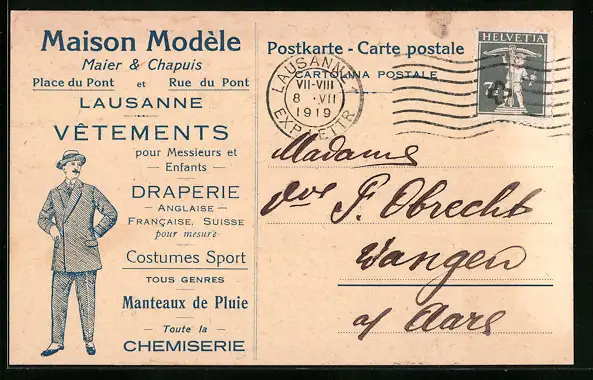 Maison Modèle
Maier & Chapuis
Place du Pont et Rue du Pont
LAUSANNE
VÊTEMENTS
pour Messieurs et
Enfants
DRAPERIE
— ANGLAISE —
FRANÇAISE, SUISSE
pour mesure
Costumes Sport
TOUS GENRES
Manteaux de Pluie
— Toute la —
CHEMISERIE
Postkarte - Carte postale
CARTOLINA POSTALE
LAUSANNE 1
VII-VIII
8 VII
1919
EXP. LETTR.
HELVETIA
Madame
F. Obrecht
Wangen
a/ Aare